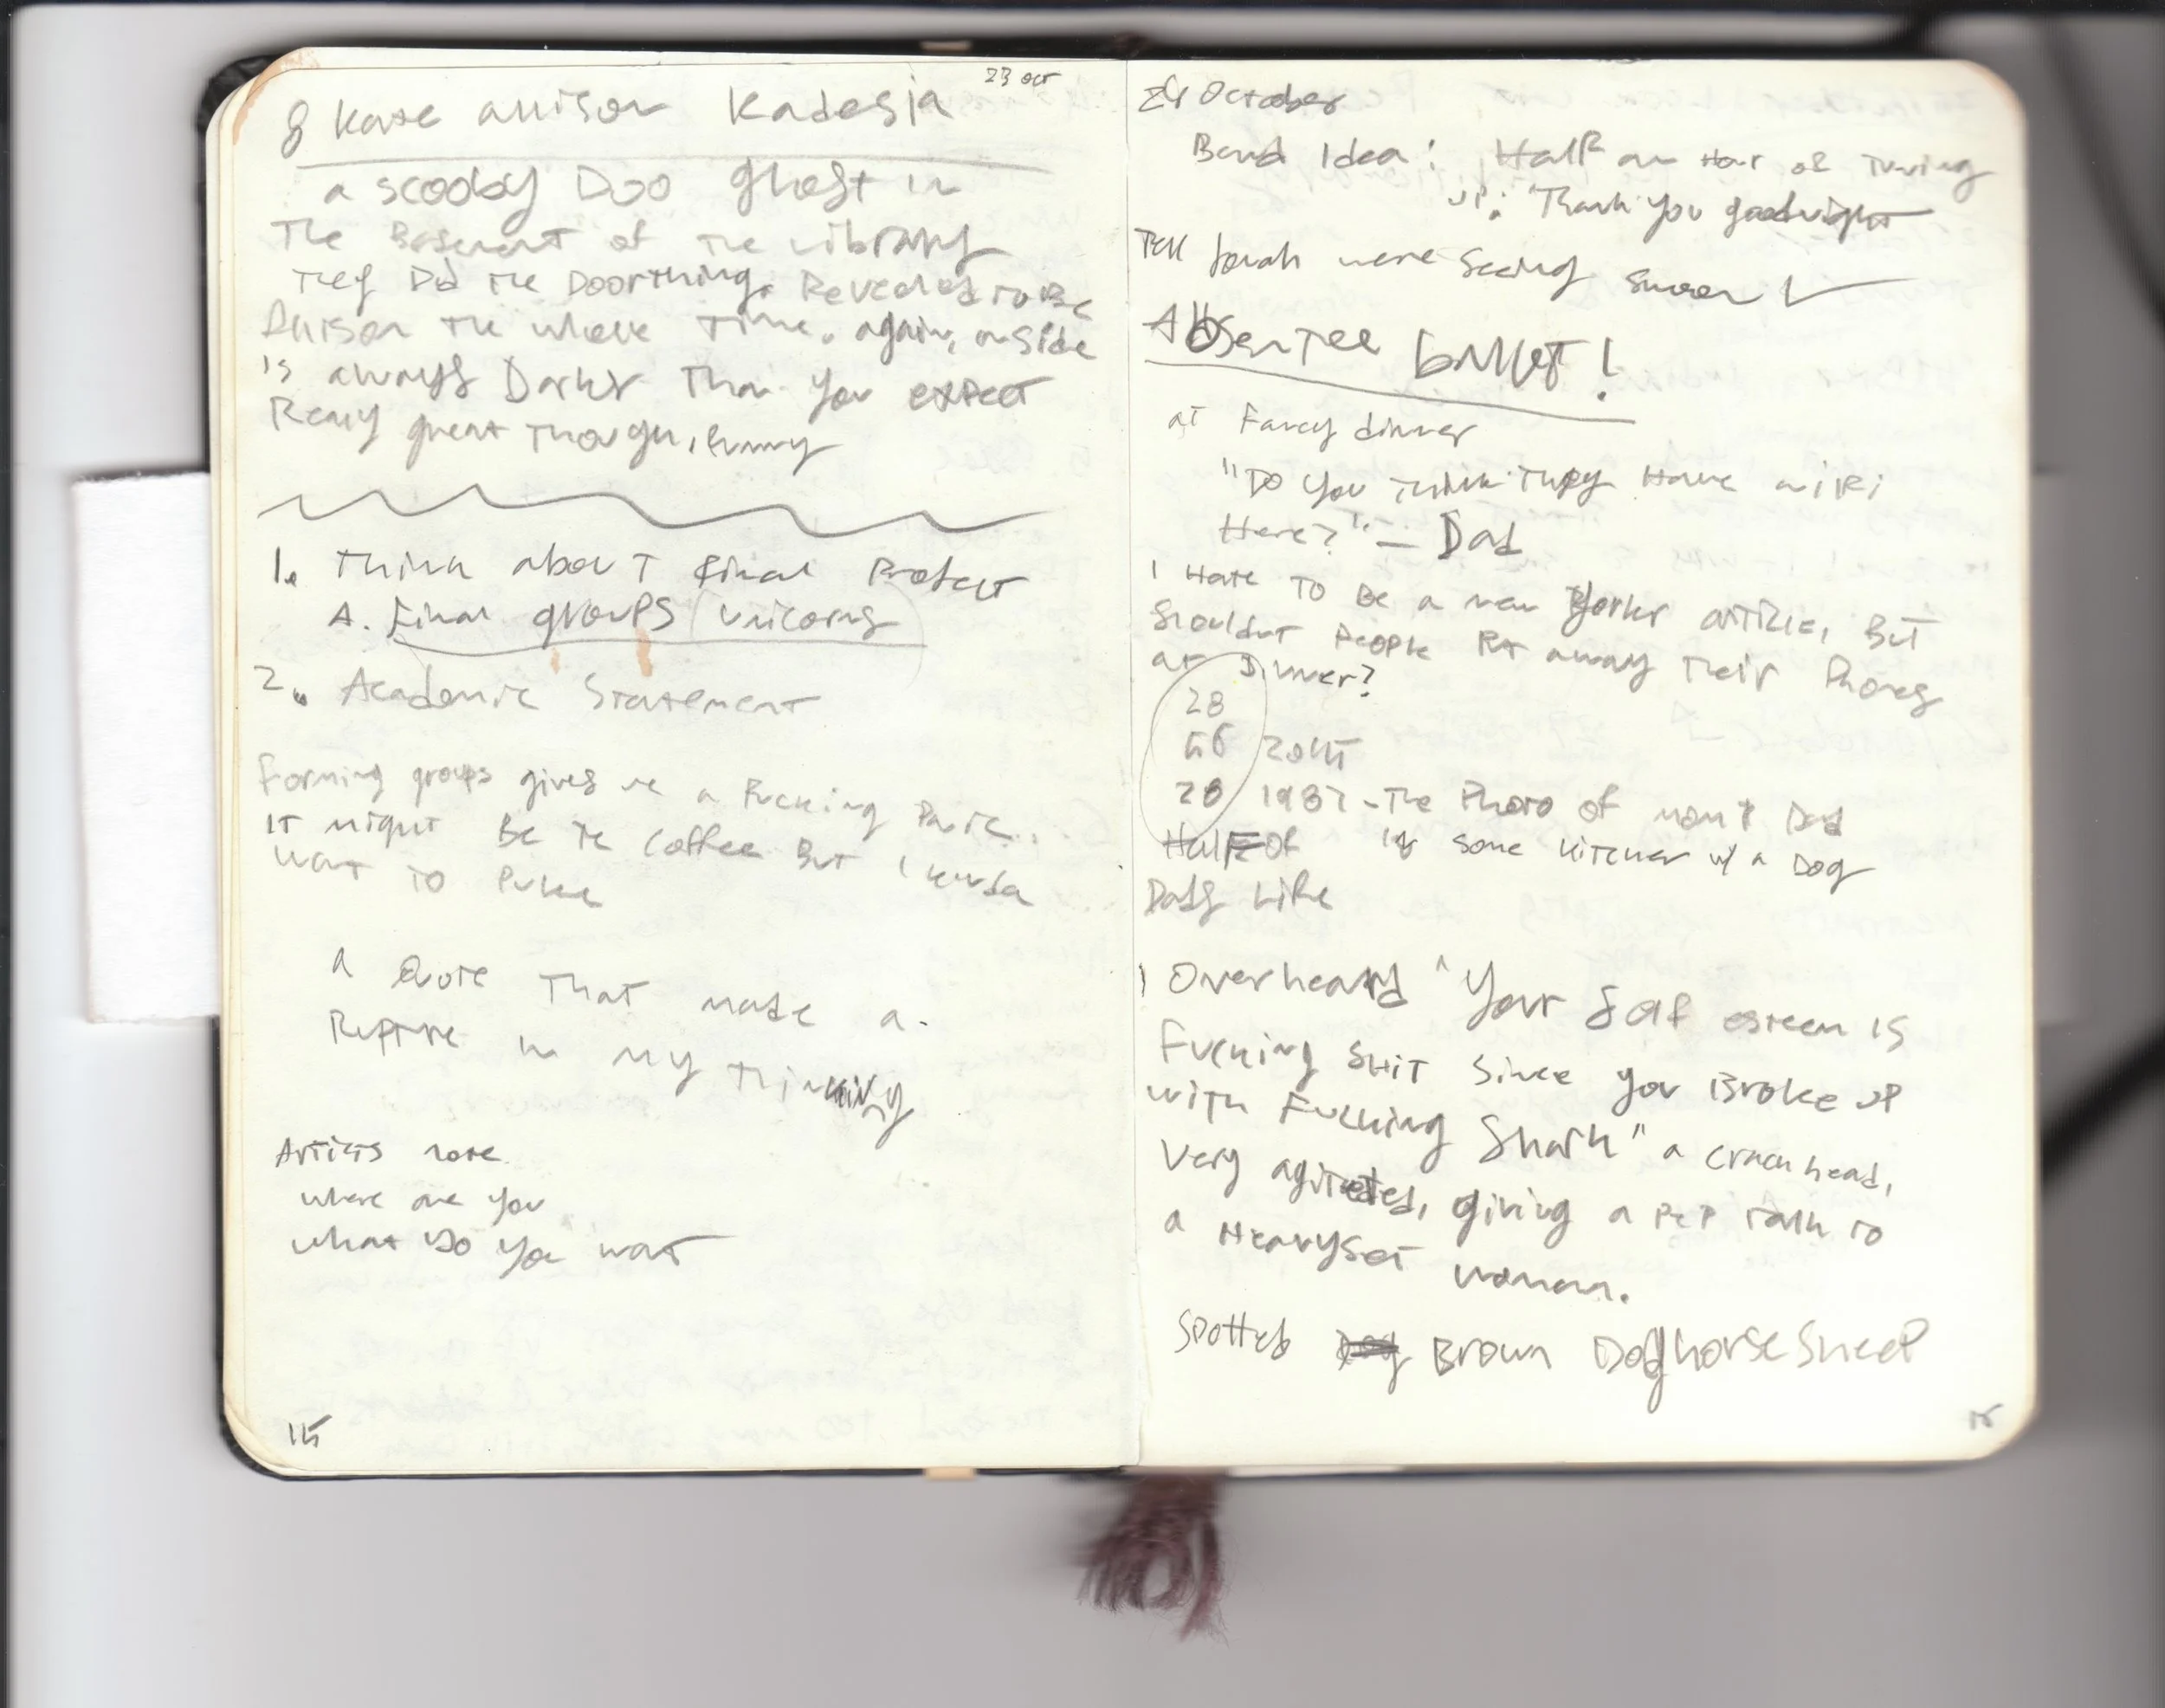 23 Oct
8 Kate Allison Kadesja
a Scooby Doo ghost in
The Basement of the Library
They Did the Doorthing. Revealed to Be
Allison the whole Time. again, outside
is always Darker Than You expect
Really great Though, funny
1. Think about Final Project
A. Final groups / unicorns
2. Academic Statement
Forming groups gives me a Fucking Panic..
IT might Be the Coffee But I kinda
want to Puke
A Quote That made a
Rupture in my thinking
Artists note
where are you
what Do You want
115
24 October
Band Idea: Half an Hour of Tuning
up: Thank you goodnight
Tell were seeing
Absentee ballot!
at Fancy dinner
"Do You Think They Have wifi
Here?" - Dad
I Hate To Be a New Yorker article, But
Shouldnt People Put away Their Phones
at Dinner?
28
56 2015
28 1987 - The Photo of mom & Dad
Half of in some kitchen w/ a Dog
Dads Life
I Overheard "Your Self esteem is
Fucking Shit Since you Broke up
with Fucking Shark" a crackhead,
Very agitated, giving a Pep Talk to
a Heavyset woman.
Spotted Dog Brown Doghorsesheep